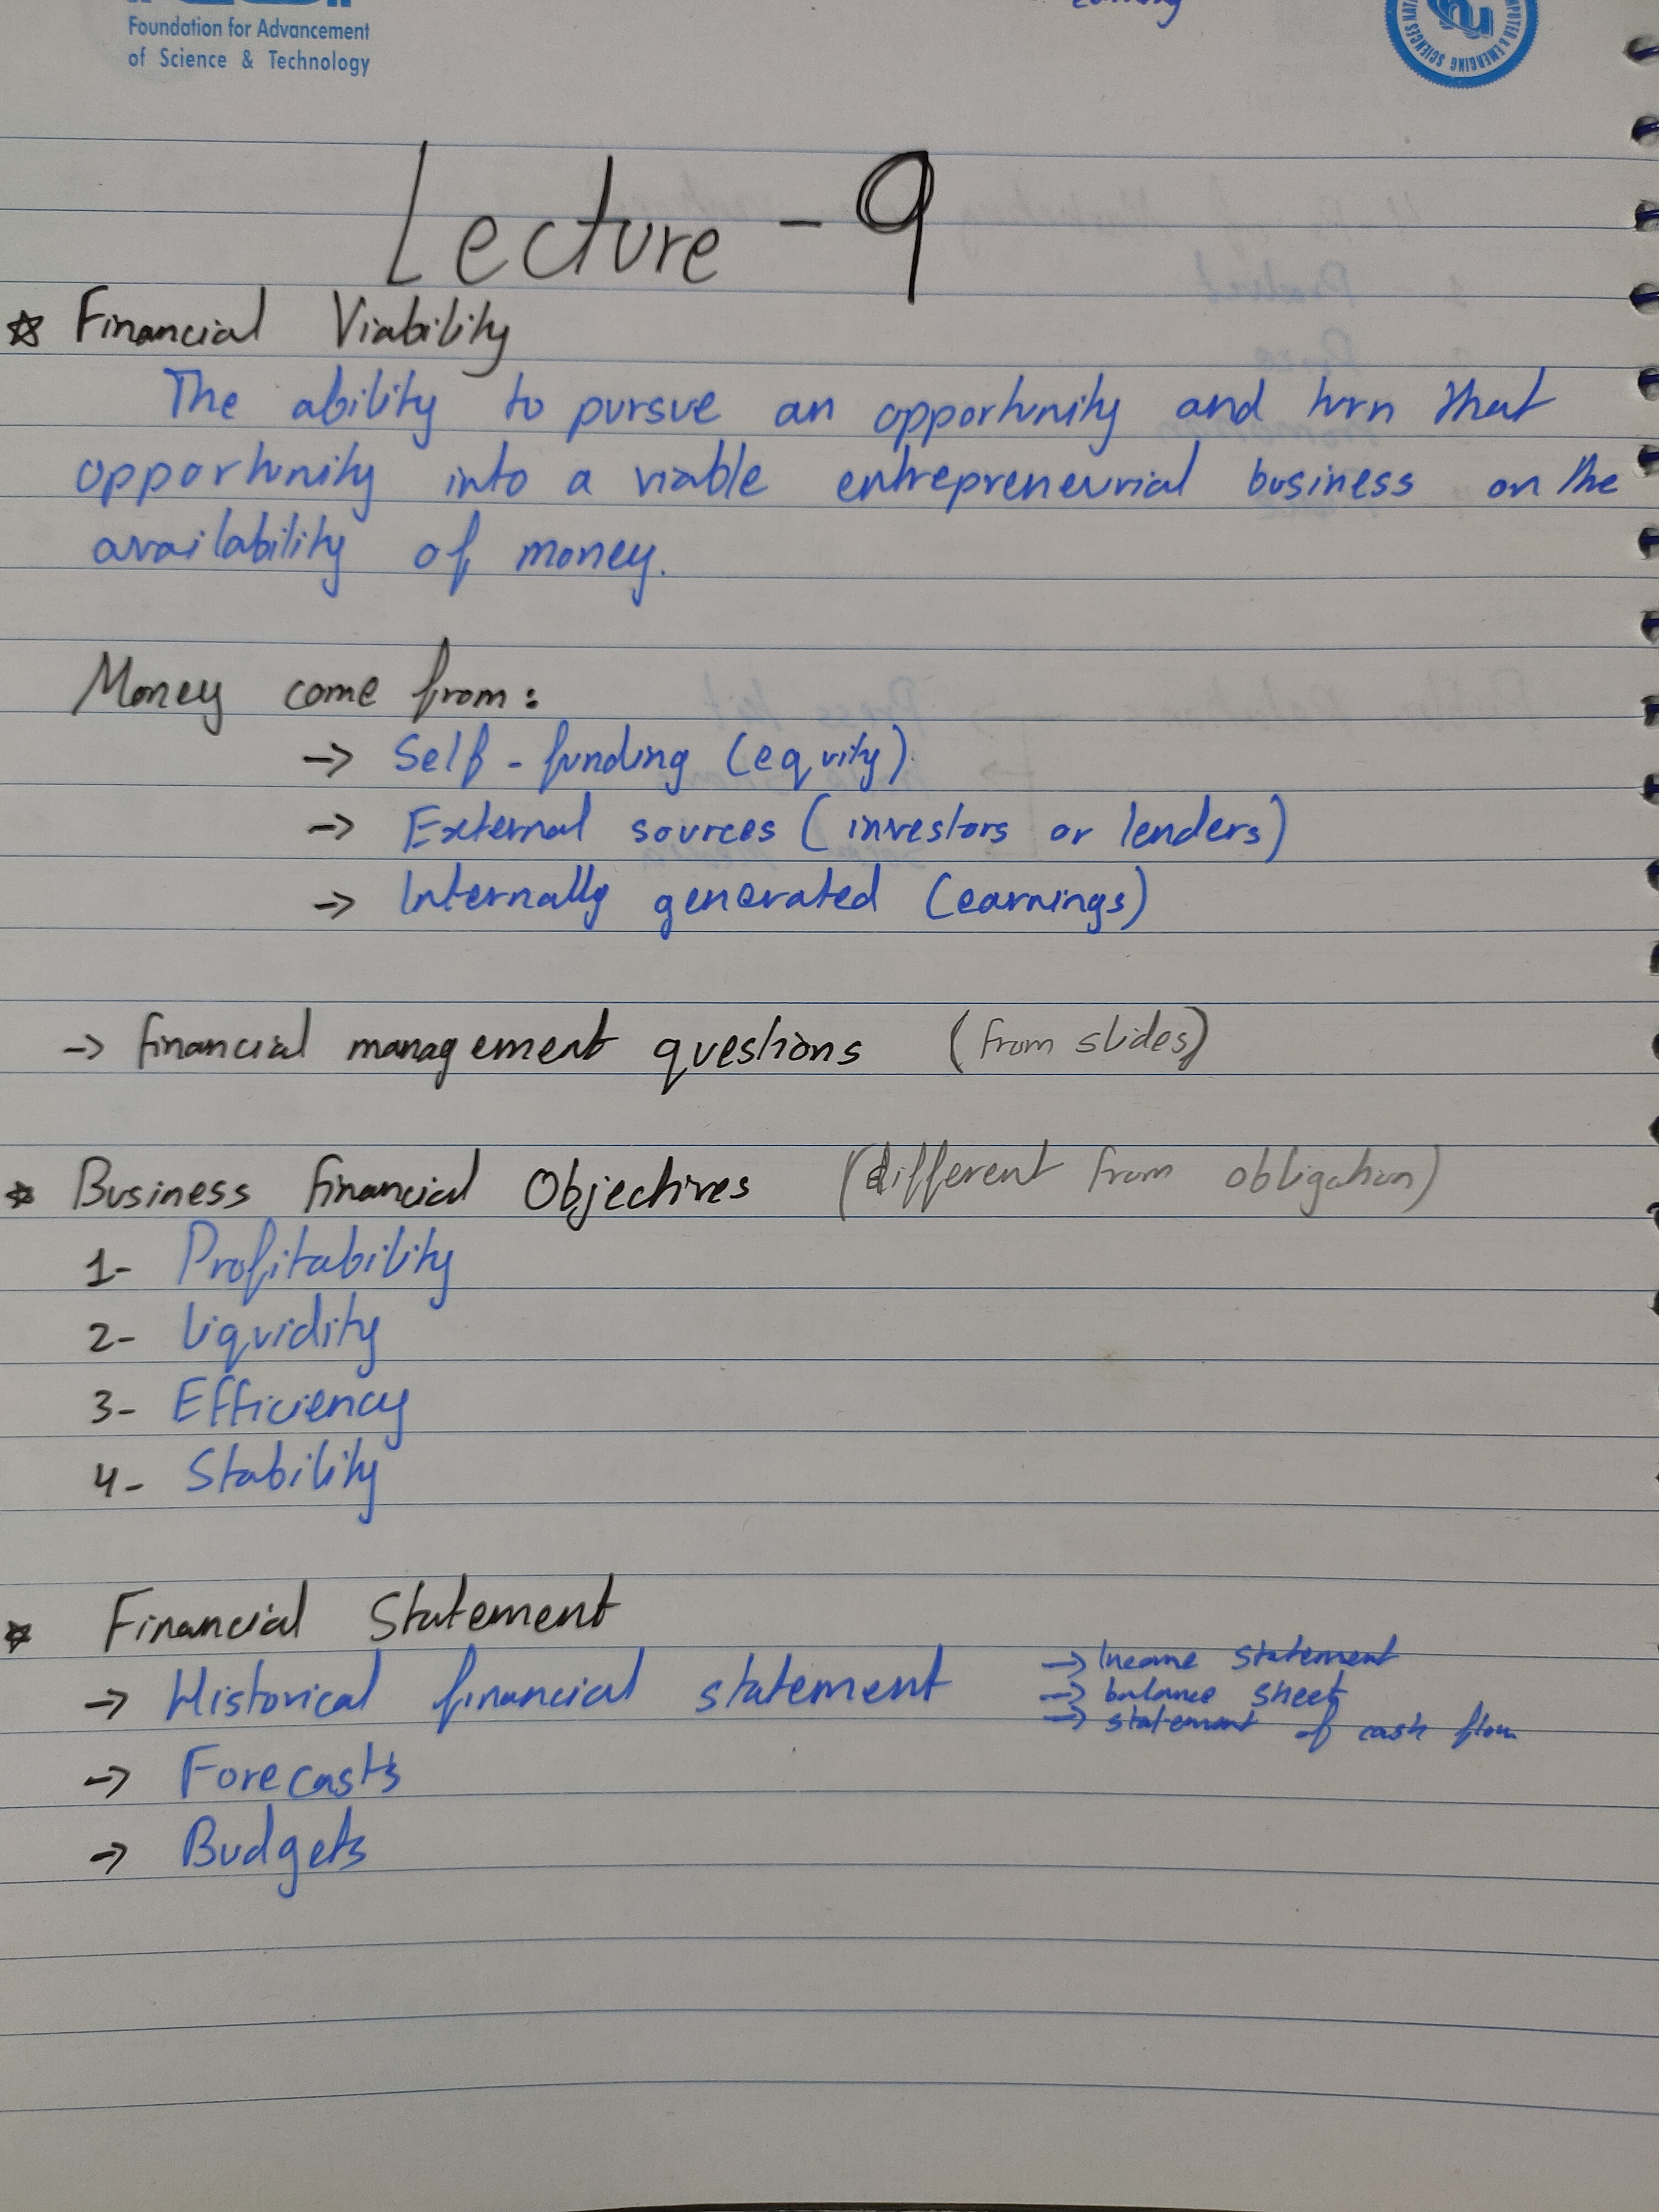 Foundation for Advancement
of Science & Technology
Lecture - 9
☆ Financial Viability
The ability to pursue an opportunity and turn that
opportunity into a viable entrepreneurial business on the
availability of money.
Money come from:
→ Self-funding (equity)
→ External sources (investors or lenders)
→ Internally generated (earnings)
→ financial management questions (from slides)
☆ Business financial Objectives (different from obligation)
1- Profitability
2- liquidity
3- Efficiency
4- Stability
☆ Financial Statement
→ Historical financial statement → Income statement
→ balance sheet
→ statement of cash flow
→ Forecasts
→ Budgets